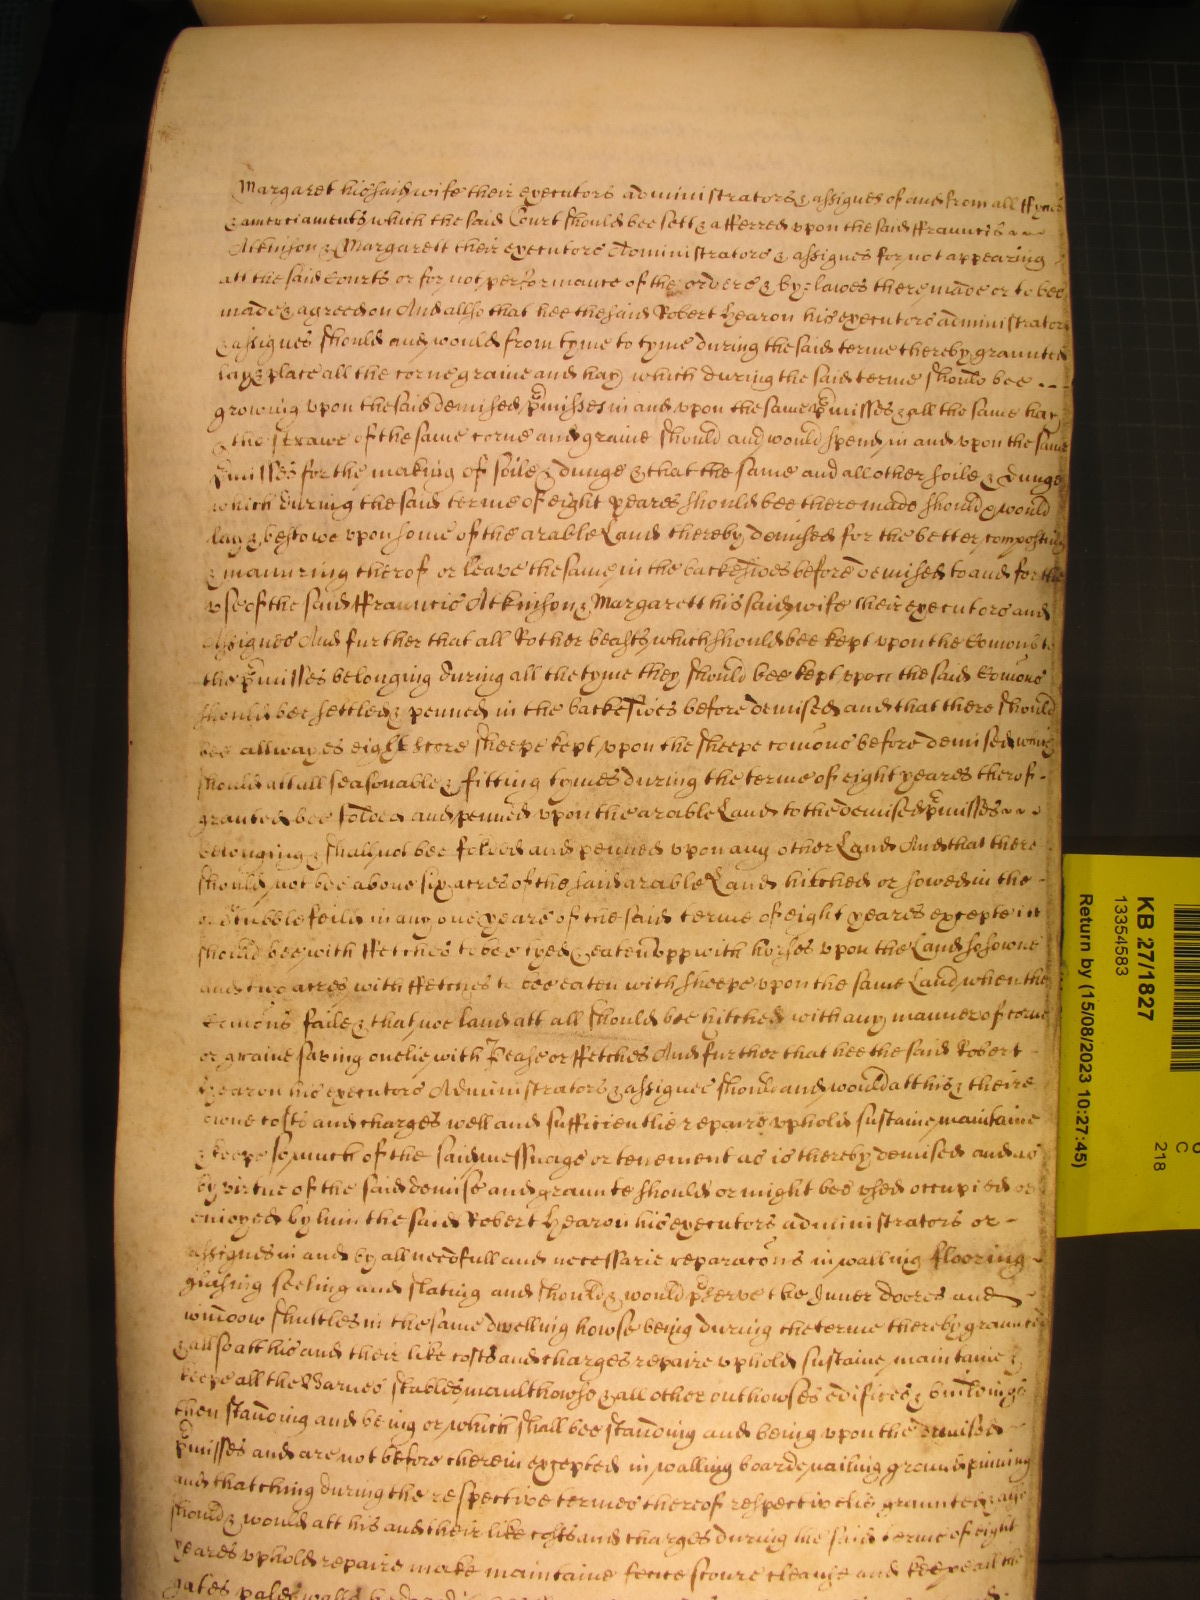 Margaret his said wife their executors administrators & assignes of and from all ffynes
& amerciaments which the said Court should bee sett & afferred upon the said ffrauncis
Atkinson & Margarett their executors Administrators & assignes for not appearing
att the said Courts or for not performance of the orders & by=lawes there made or to bee
made & agreed on And allso that hee the said Robert Hearon his executors administrators
& assignes should and would from tyme to tyme during the said terme thereby graunted
lay & place all the corne graine and hay which during the said terme should bee
growing upon the said demised pmisses in and upon the same pmisses & all the same hay
& the strawe of the same corne and graine should and would spend in and upon the same
pmisses for the making of soile & dunge & that the same and all other soile & dunge
which during the said terme of eight yeares should bee there made should & would
lay & bestowe upon some of the arable Land thereby demised for the better composting
& manuring therof or leave the same in the backesides before demised to and for the
use of the said ffrauncis Atkinson & Margarett his said wife their executors and
Assignes And further that all Rother beasts which should bee kept upon the Comons to
the pmisses belonging during all the tyme they should bee kept upon the said Comons
should bee settled & penned in the backesides before demised and that there should
bee allwayes eight score sheepe kept upon the sheepe comons before demised which
should att all seasonable & fitting tymes during the terme of eight yeares therof
granted bee folded and penned upon the arable Land to the demised pmisses
belonging & shall not bee folded and penned upon any other Land And that there
should not bee above six acres of the said arable Land hitched or sowed in the
stubble feild in any one yeare of the said terme of eight yeares excepte itt
should bee with ffetches to bee tyed & eaten upp with horses upon the Land so sowne
and two acres with ffetches to bee eaten with sheepe upon the same Land when the
Comons faile & that noe land att all should bee hitched with any manner of corne
or graine saving onelie with Pease or ffetches And further that hee the said Robert
Hearon his executors Administrators & assignes should and would att his & theire
owne costs and charges well and sufficientlie repaire uphold sustaine maintaine
& keepe so much of the said messuage or tenement as is thereby demised and as
by virtue of the said demise and graunte should or might bee used occupied or
enioyed by him the said Robert Hearon his executors administrators or
assignes in and by all needfull and necessarie reparacons in walling flooring
glasing seeling and slating and should & would pserve the Inner doores and
window shuttles in the same dwelling howse being during the terme thereby graunted
& allso att his and their like costs and charges repaire uphold sustaine maintaine &
keepe all the Barnes stables maulthowse & all other outhowses edifices & buildings
then standing and being or which shall bee standing and being upon the demised
pmisses and are not before therein excepted in walling boarde nailing groundpining
and thatching during the respective termes thereof respectivelie graunted & allso
should & would att his and their like costs and charges during the said terme of eight
yeares uphold repaire make maintaine fence scoure cleanse and keepe all the
gates pales walls
KB 27/1827
13354583
Return by (15/08/2023 10:27:45)
C
218